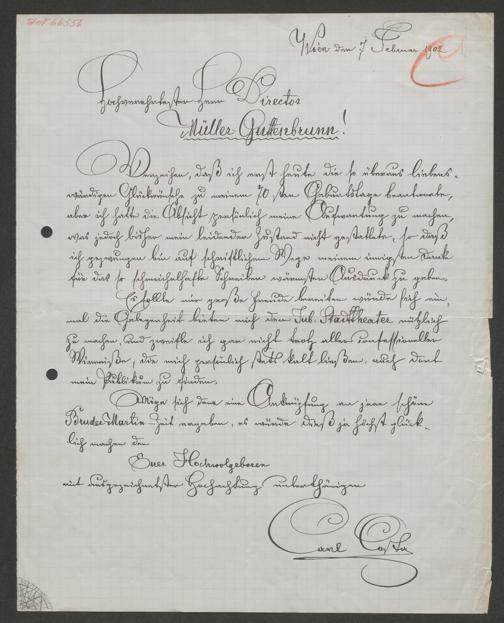 Wien den 7 Februar 1902
Hochverehrtester Herr Director
Müller Guttenbrunn!
Verzeihen, daß ich erst heute die so überaus liebens-
würdigen Glückwünsche zu meinem 70 sten Geburtstage beantworte,
aber ich hatte die Absicht persönlich meine Aufwartung zu machen,
was jedoch bisher mein leidender Zustand nicht gestattete, so daß
ich gezwungen bin auf schriftlichem Wege meinem innigsten Danke
für das so schmeichelhafte Schreiben wärmsten Ausdruck zu geben.
Es sollte mir große Freude bereiten würde sich ein-
mal die Gelegenheit bieten mich dem Jub. Stadttheater nützlich
zu machen, und zweifle ich gar nicht trotz aller confessioneller
die mich persönlich stets kalt ließen, auch dort
mein Publikum zu finden.
Möge sich denn eine Anknüpfung an jene schöne
Bruder Martin-Zeit ergeben, es würde dieß ja höchst glück-
lich machen den
Euer Hochwolgeboren
mit ausgezeichnetster Hochachtung unterthänigen
Carl Costa